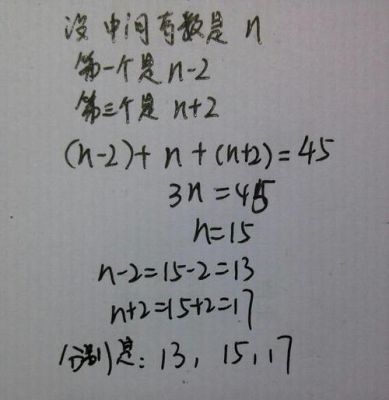 设中间奇数是 n
第一个是 n-2
第三个是 n+2
(n-2)+n+(n+2)=45
3n=45
n=15
n-2=15-2=13
n+2=15+2=17
分别是：13，15，17